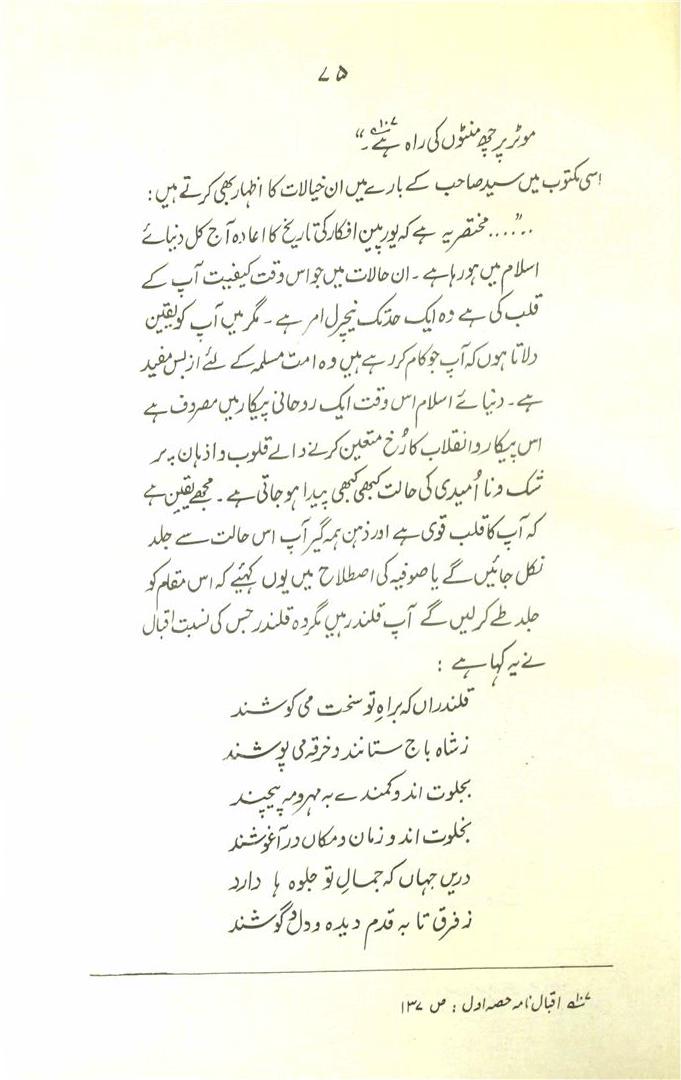 ۷۵
موٹر پر چھ منٹوں کی راہ ہے۔“ ۱۰۷
اسی مکتوب میں سید صاحب کے بارے میں ان خیالات کا اظہار بھی کرتے ہیں:
”.... مختصر یہ ہے کہ یورپین افکار کی تاریخ کا اعادہ آج کل دنیائے
اسلام میں ہو رہا ہے۔ ان حالات میں جو اس وقت کیفیت آپ کے
قلب کی ہے وہ ایک حد تک نیچرل امر ہے۔ مگر میں آپ کو یقین
دلاتا ہوں کہ آپ جو کام کر رہے ہیں وہ امت مسلمہ کے لئے از بس مفید
ہے۔ دنیائے اسلام اس وقت ایک روحانی پیکار میں مصروف ہے
اس پیکار و انقلاب کا رُخ متعین کرنے والے قلوب و اذہان پر
شک و نا اُمیدی کی حالت کبھی کبھی پیدا ہو جاتی ہے۔ مجھے یقین ہے
کہ آپ کا قلب قوی ہے اور ذہن ہمہ گیر آپ اس حالت سے جلد
نکل جائیں گے یا صوفیہ کی اصطلاح میں یوں کہئیے کہ اس مقام کو
جلد طے کرلیں گے آپ قلندر ہیں مگر وہ قلندر جس کی نسبت اقبال
نے یہ کہا ہے :
قلندراں کہ براہِ تو سخت می کوشند
ز شاہ باج ستانند و خرقہ می پوشند
بجلوت اند و کمندے بہ مہر و مہ پیچند
بخلوت اند و زمان و مکاں در آغوشند
دریں جہاں کہ جمالِ تو جلوہ ہا دارد
ز فرق تا بہ قدم دیدہ و دل و گوشند
۱۰۷ اقبال نامہ حصہ اول : ص ۱۳۷